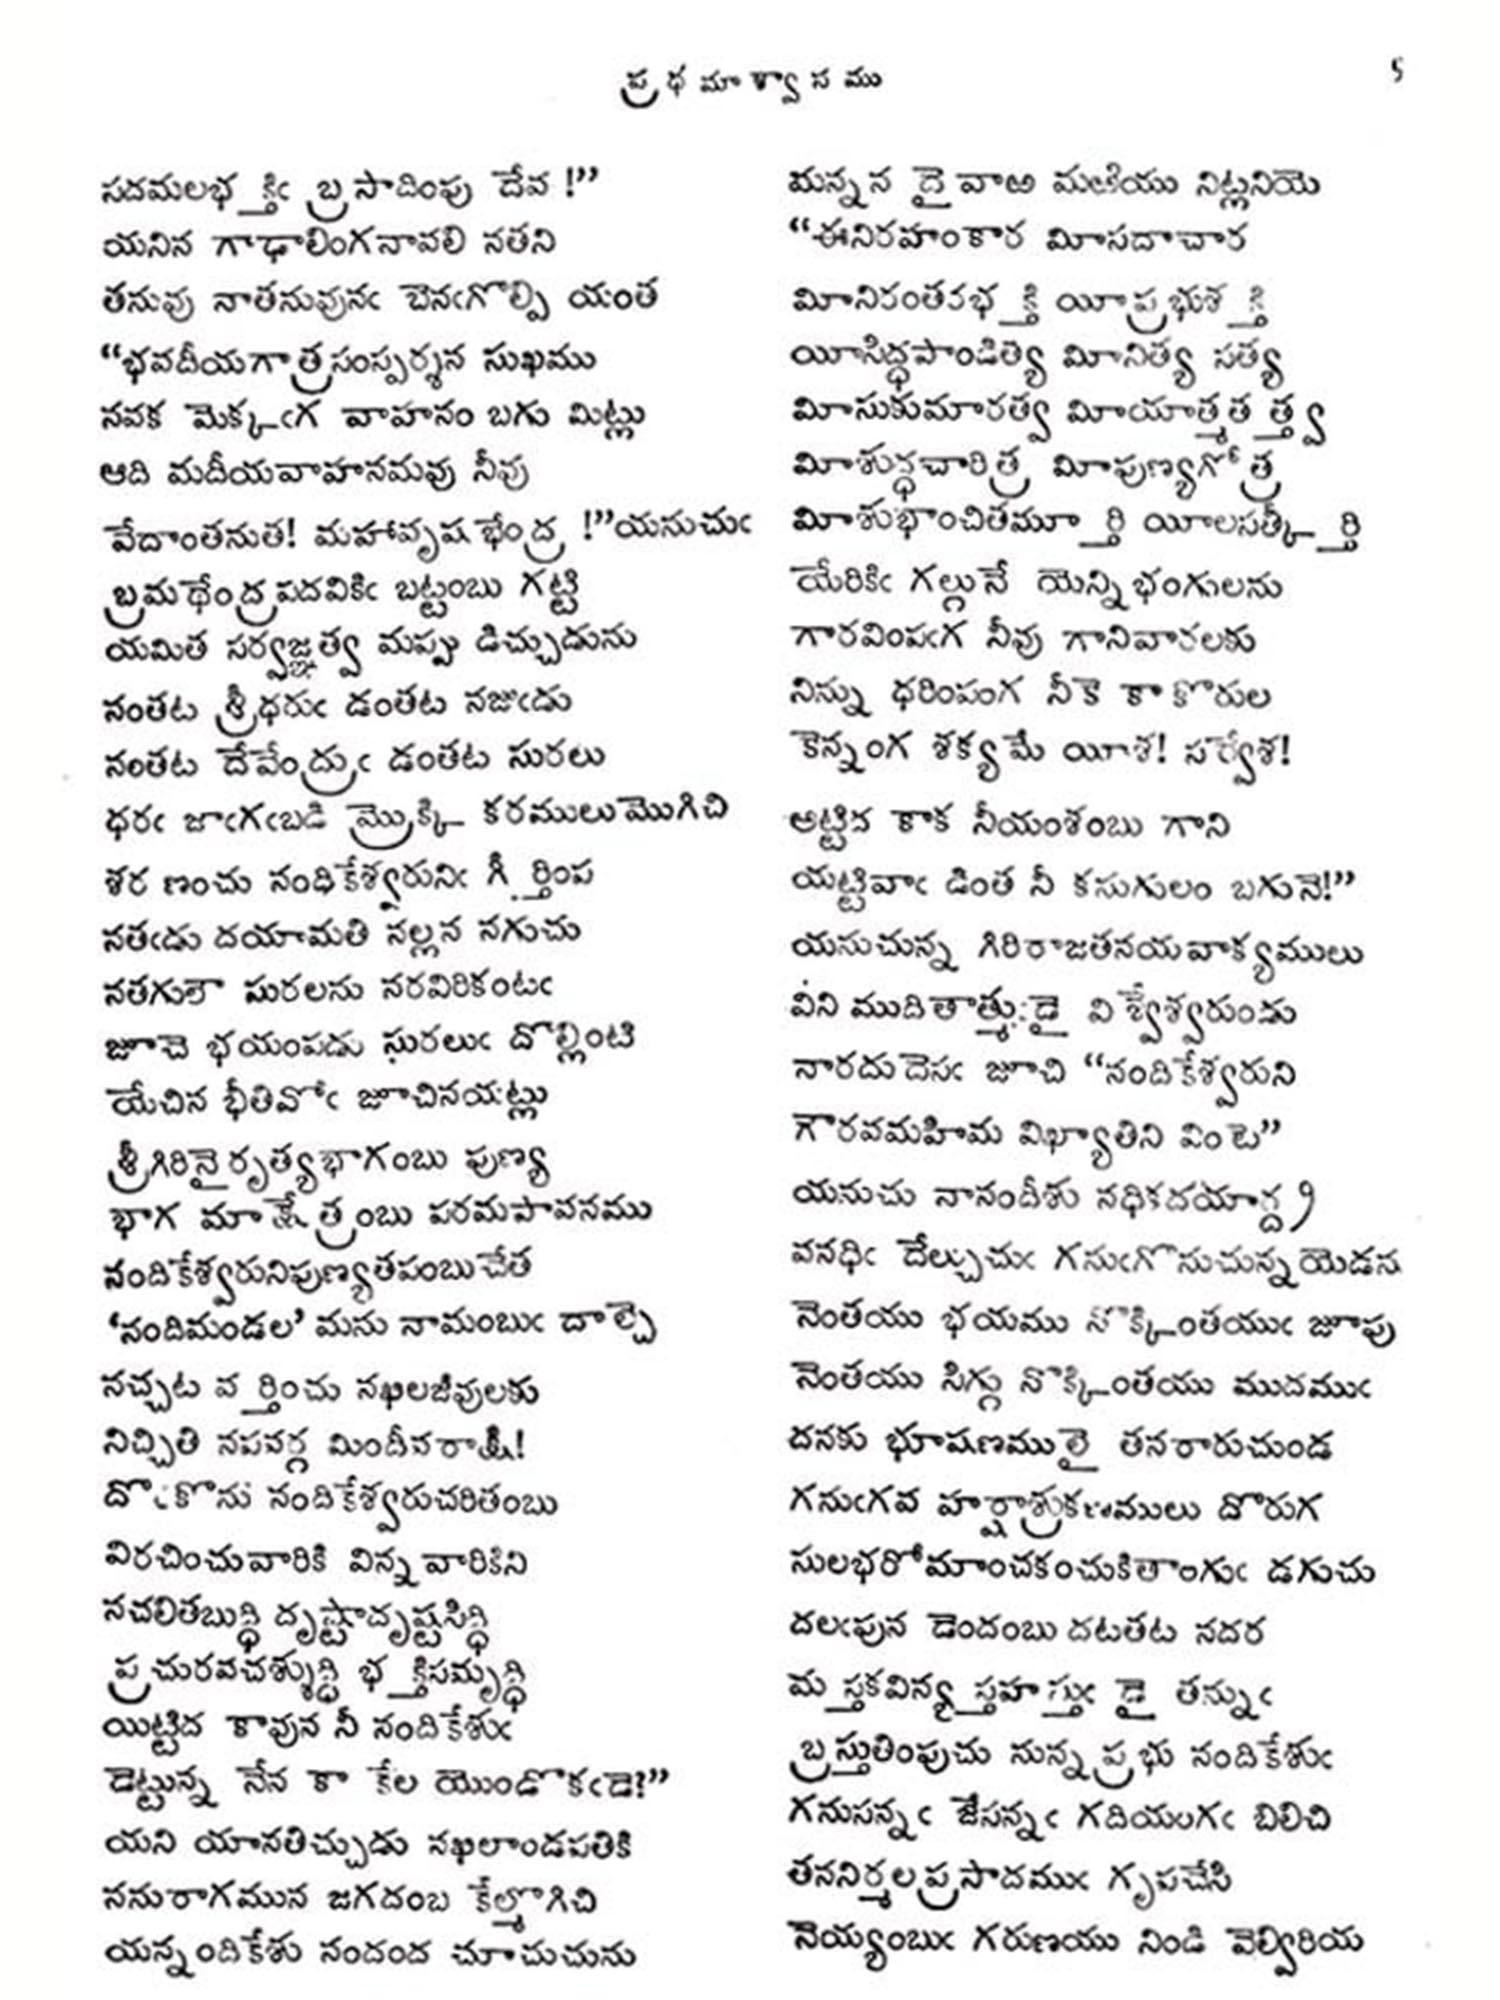 ప్రథమాశ్వాసము
5
సదమలభక్తిఁ బ్రసాదింపు దేవ !”
యనిన గాఢాలింగనావలి నతని
తనువు నాతనువునఁ బెనఁగొల్పి యంత
“భవదీయగాత్రసంస్పర్శన సుఖము
నవక మెక్కఁగ వాహనం బగు మిట్లు
ఆది మదీయవాహనమవు నీవు
వేదాంతనుత! మహావృషభేంద్ర !”యనుచుఁ
బ్రమథేంద్రపదవికిఁ బట్టంబు గట్టి
యమిత సర్వజ్ఞత్వ మప్పు డిచ్చుడును
నంతట శ్రీధరుఁ డంతట నజుఁడు
నంతట దేవేంద్రుఁ డంతట సురలు
ధరఁ జాఁగఁబడి మ్రొక్కి కరములుమొగిచి
శర ణంచు నందికేశ్వరునిఁ గీర్తింప
నతఁడు దయామతి నల్లన నగుచు
నతగులౌ సురలను నరవిరికంటఁ
జూచె భయంపడు సురలుఁ దొల్లింటి
యేచిన భీతివోఁ జూచినయట్లు
శ్రీగిరినైరృత్యభాగంబు పుణ్య
భాగ మాక్షేత్రంబు పరమపావనము
నందికేశ్వరునిపుణ్యతపంబుచేత
‘నందిమండల’ మను నామంబుఁ దాల్చె
నచ్చట వర్తించు నఖిలజీవులకు
నిచ్చితి నపవర్గ మిందీవరాక్షీ!
దొఁకొను నందికేశ్వరుచరితంబు
విరచించువారికి విన్నవారికిని
నచలితబుద్ధి దృష్టాదృష్టసిద్ధి
ప్రచురవచశ్శుద్ధి భక్తిసమృద్ధి
యిట్టిద కావున నీ నందికేశుఁ
డెట్టున్న నేన కా కేల యొండొకఁడె?”
యని యానతిచ్చుడు నఖిలాండపతికి
ననురాగమున జగదంబ కేల్మొగిచి
యన్నందికేశు నందంద చూచుచును
మన్నన దైవాఱ మఱియు నిట్లనియె
“ఈనిరహంకార మీసదాచార
మీనిరంతరభక్తి యీప్రభుశక్తి
యీసిద్ధపాండిత్య మీనిత్య సత్య
మీసుకుమారత్వ మీయాత్మతత్త్వ
మీశుద్ధచారిత్ర మీపుణ్యగోత్ర
మీశుభాంచితమూర్తి యీలసత్కీర్తి
యేరికిఁ గల్గునే యెన్నిభంగులను
గారవింపఁగ నీవు గానివారలకు
నిన్ను ధరింపంగ నీకె కా కొరుల
కెన్నంగ శక్యమే యీశ! సర్వేశ!
అట్టిద కాక నీయంశంబు గాని
యట్టివాఁ డింత నీ కనుగులం బగునె!”
యనుచున్న గిరిరాజతనయవాక్యములు
విని ముదితాత్ముఁడై విశ్వేశ్వరుండు
నారదుదెసఁ జూచి “నందికేశ్వరుని
గౌరవమహిమ విఖ్యాతిని వింటె”
యనుచు నానందీశు నధికదయార్ద్ర
వనధిఁ దేల్చుచుఁ గనుఁగొనుచున్నయెడన
నెంతయు భయము నొక్కింతయుఁ జూపు
నెంతయు సిగ్గు నొక్కింతయు ముదముఁ
దనకు భూషణములై తనరారుచుండ
గనుఁగవ హర్షాశ్రుకణములు దొరుగ
సులభరోమాంచకంచుకితాంగుఁ డగుచు
దలఁపున డెందంబు దటతట నదర
మస్తకవిన్యస్తహస్తుఁ డై తన్నుఁ
బ్రస్తుతింపుచు నున్నప్రభు నందికేశుఁ
గనుసన్నఁ జేసన్నఁ గదియంగఁ బిలిచి
తననిర్మలప్రసాదముఁ గృపచేసి
నెయ్యంబుఁ గరుణయు నిండి వెల్విరియ